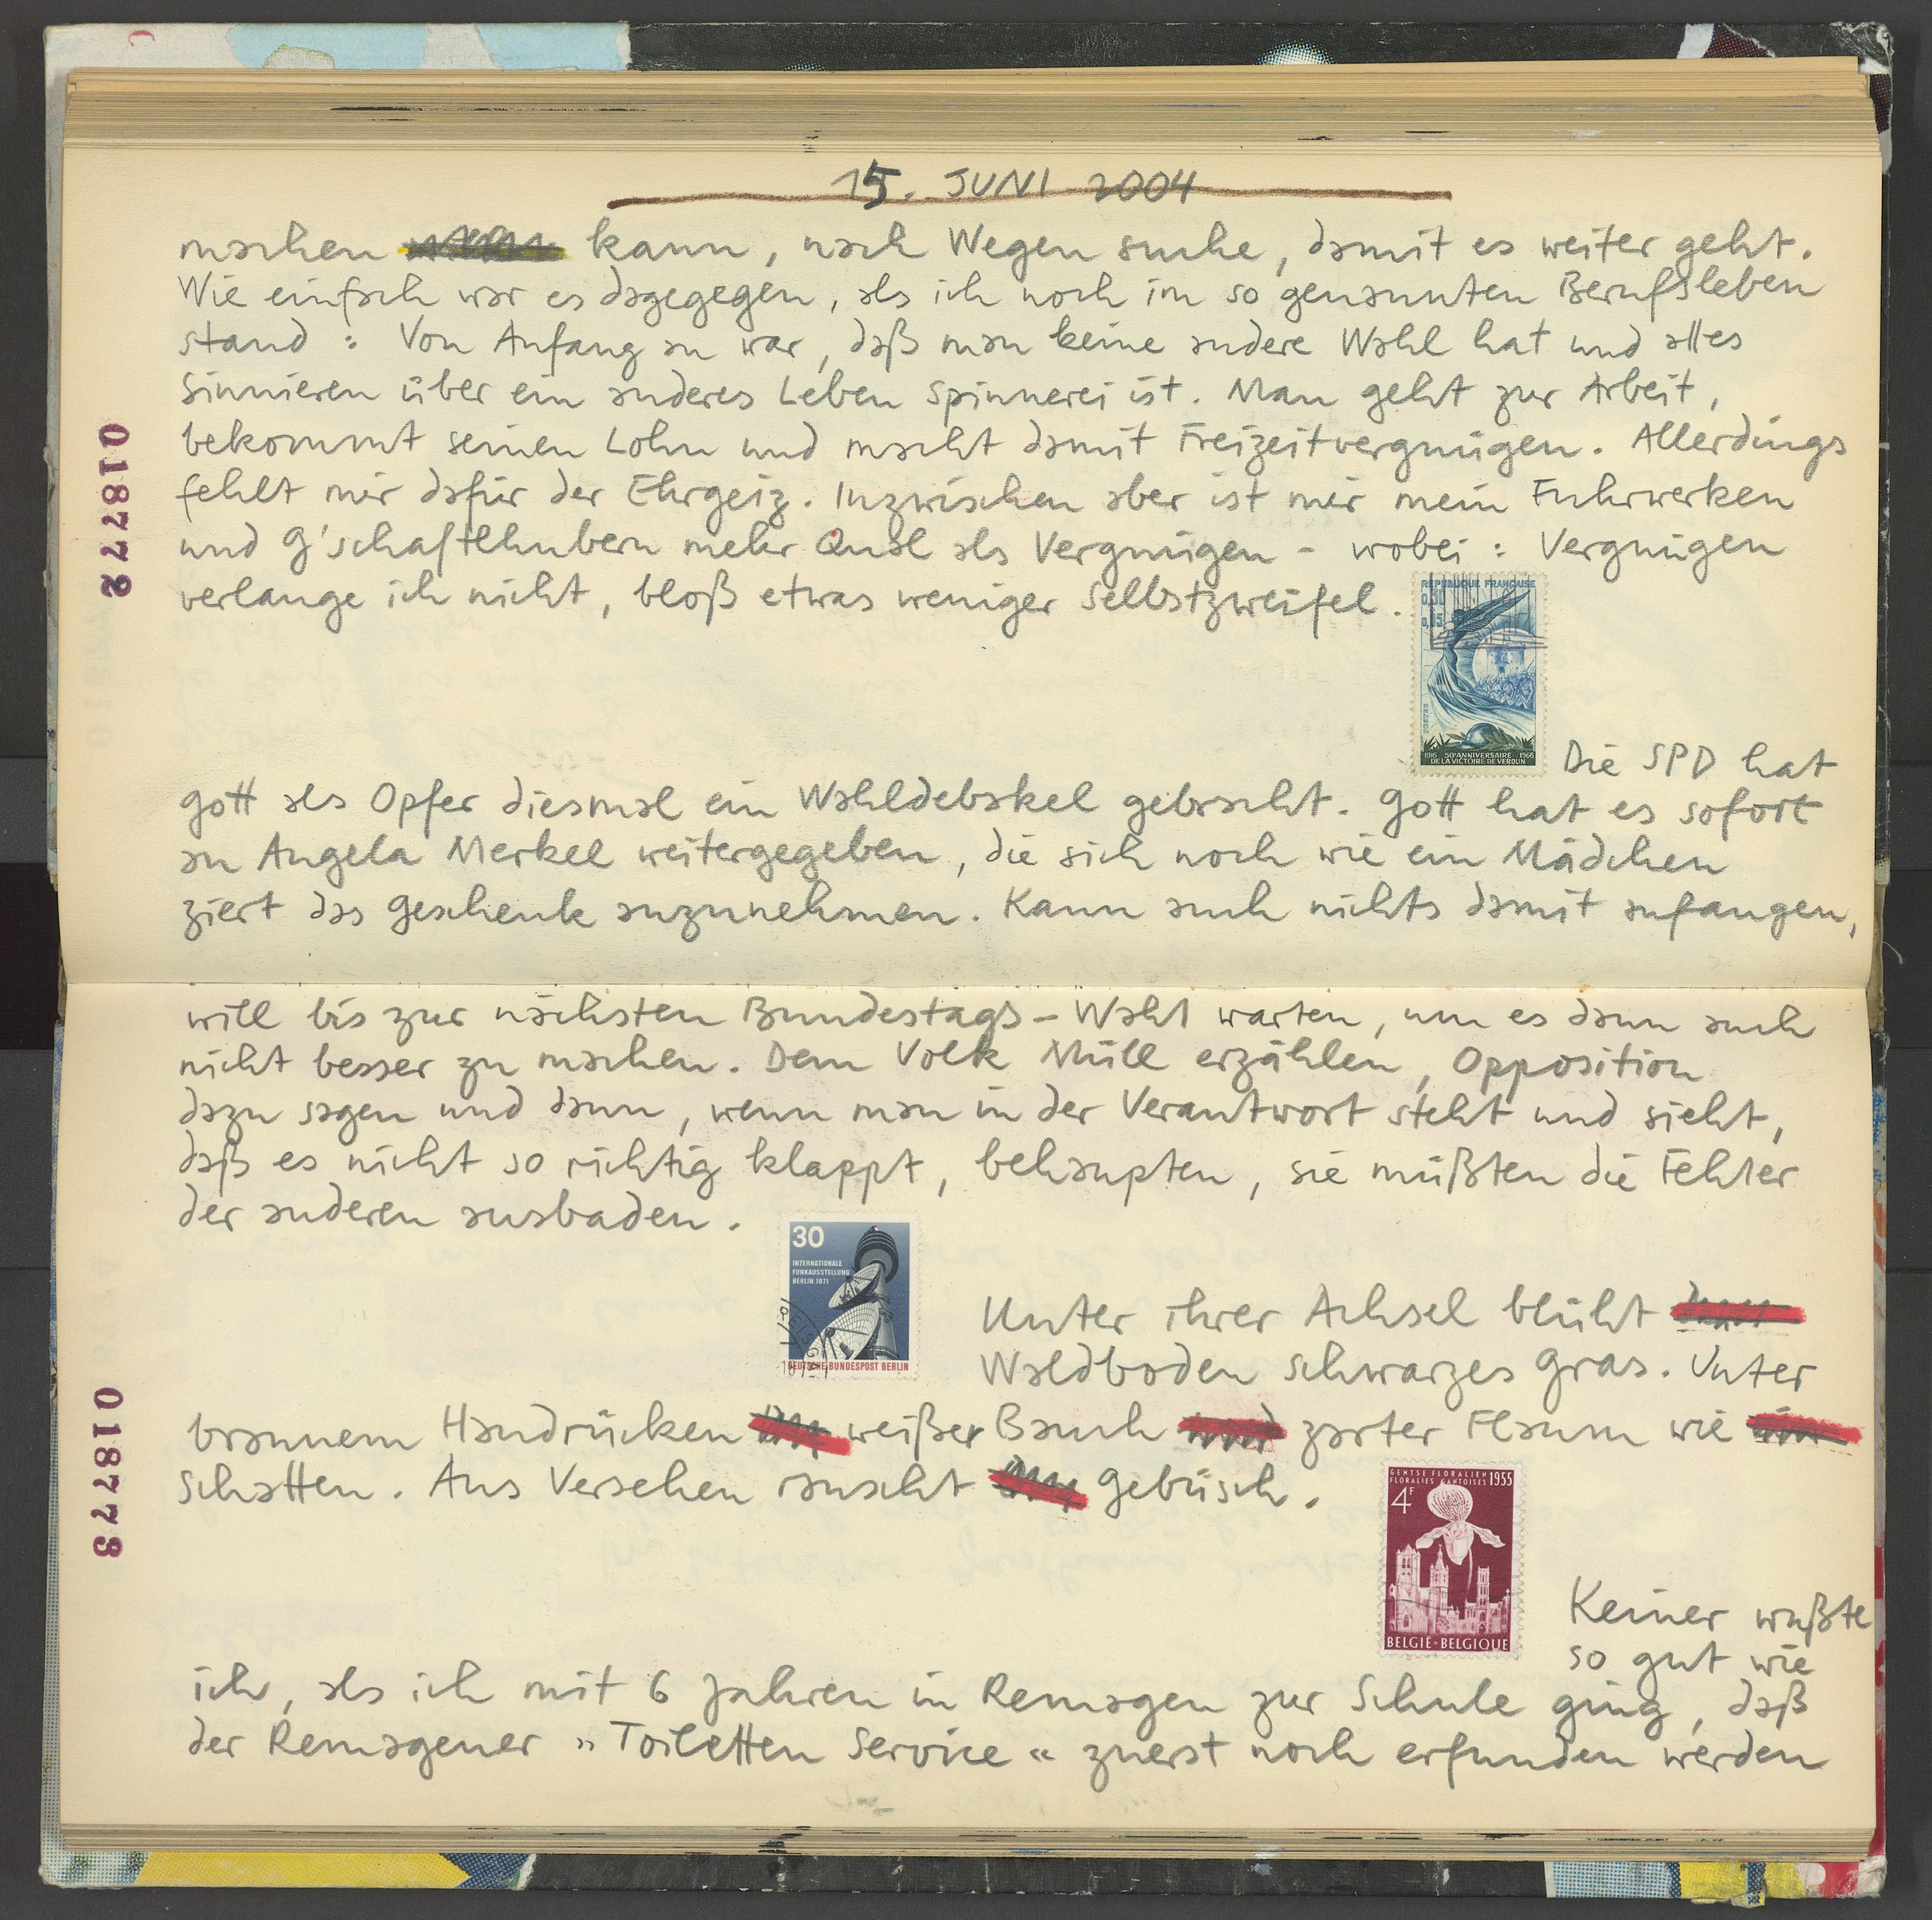 15. JUNI 2004
machen kann, nach Wegen suche, damit es weiter geht.
Wie einfach war es dagegegen, als ich noch im so genannten Berufsleben
stand : Von Anfang an war, daß man keine andere Wahl hat und alles
Sinnieren über ein anderes Leben Spinnerei ist. Man geht zur Arbeit,
bekommt seinen Lohn und macht damit Freizeitvergnügen. Allerdings
fehlt mir dafür der Ehrgeiz. Inzwischen aber ist mir mein Fuhrwerken
und G'schaftlhubern mehr Qual als Vergnügen - wobei : Vergnügen
verlange ich nicht, bloß etwas weniger Selbstzweifel.
REPUBLIQUE FRANÇAISE
1916 50e ANNIVERSAIRE 1966
DE LA VICTOIRE DE VERDUN
Die SPD hat
Gott als Opfer diesmal ein Wahldebakel gebracht. Gott hat es sofort
an Angela Merkel weitergegeben, die sich noch wie ein Mädchen
ziert das Geschenk anzunehmen. Kann auch nichts damit anfangen,
will bis zur nächsten Bundestags-Wahl warten, um es dann auch
nicht besser zu machen. Dem Volk Müll erzählen, Opposition
dazu sagen und dann, wenn man in der Verantwort steht und sieht,
daß es nicht so richtig klappt, behaupten, sie müßten die Fehler
der anderen ausbaden.
30
INTERNATIONALE
FUNKAUSSTELLUNG
BERLIN 1971
DEUTSCHE BUNDESPOST BERLIN
Unter ihrer Achsel blüht
Waldboden schwarzes Gras. Unter
braunem Handrücken weißer Bauch zarter Flaum wie
Schatten. Aus Versehen rauscht Gebüsch.
GENTSE FLORALIEN 1955
FLORALIES GANTOISES
4F
BELGIË-BELGIQUE
Keiner wußte
so gut wie
ich, als ich mit 6 Jahren in Remagen zur Schule ging, daß
der Remagener "Toiletten Service" zuerst noch erfunden werden
018772
018773